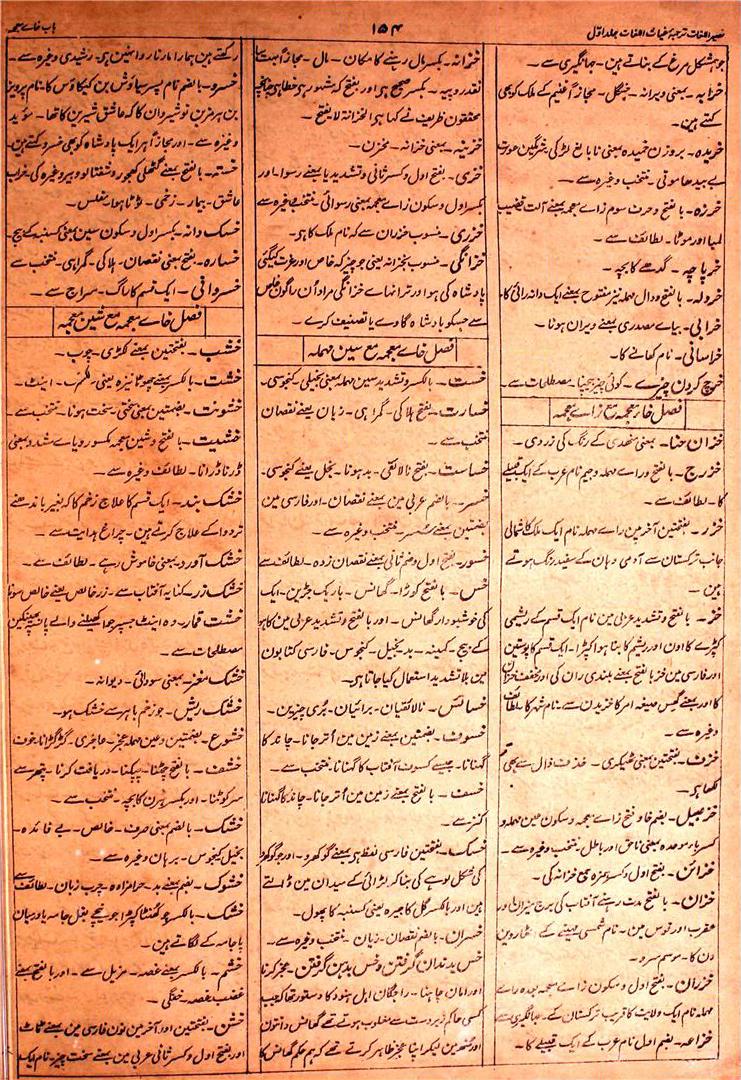 نصیر اللغات ترجمۂ غیاث اللغات جلد اول
۱۵۴
باب خاے معجمہ
جو بشکل مرغ کے بناتے ہین۔ جہانگیری سے۔
خرابہ۔ بمعنی ویرانہ۔ جنگل۔ مجازاً غنیم کے ملک کو بھی
کہتے ہین۔
خریدہ۔ بروزن خمیدہ بمعنی نا بالغ لڑکی شرمگین عورت
خرزہ۔ بالفتح و حرف سوم زاے معجمہ بمعنے آلت قضیب
لمبا اور موٹا۔ لطائف سے۔
خر پاچہ۔ گدھے کا بچہ۔
خردلہ۔ بالفتح و دال مہملہ نیز مفتوح بمعنے ایک دانہ رائی کا۔
خرابی۔ بیاے مصدری بمعنے ویران ہونا۔
خراسانی۔ نام کھانے کا۔
خرچ کردن چیزے۔ کوئی چیز بیچنا۔ مصطلحات سے۔
فصل خاے معجمہ مع زاے معجمہ
خزان حنا۔ بمعنی مہندی کے رنگ کی زردی۔
خزرج۔ بالفتح و راے مہملہ و جیم نام عرب کے ایک قبیلے
کا۔ لطائف سے۔
خزر۔ بفتحتین آخر مین راے مہملہ نام ایک ملک کا شمالی
جانب ترکستان سے آدمی وہان کے سفید رنگ ہوتے
ہین۔
خز۔ بالفتح و تشدید عربی مین نام ایک قسم کے ریشمی
کپڑے کا اون اور ریشم کا بنا ہوا کپڑا۔ ایک قسم کا پوستین
اور فارسی مین خز بالفتح بمعنے بلندی ران کی اور مخفف خزان
کا اور بمعنے گھس صیغہ امر کا خزیدن سے۔ نام شہر کا۔ لطائف
وغیرہ سے۔
خزف۔ بفتحتین بمعنی ٹھیکری۔ خذف ذال سے بھی
لکھا ہے۔
خزعبیل۔ بضم خا و فتح زاے معجمہ و سکون عین مہملہ و
کسر باء موحدہ بمعنی ناحق اور باطل۔ منتخب وغیرہ سے۔
خزائن۔ بفتح اول و کسر ہمزہ جمع خزانہ کی۔
خزان۔ بالفتح مدت رہنے آفتاب کی برج میزان اور
عقرب اور قوس مین۔ نام شمسی مہینے کے اٹھاروین
دن کا۔ موسم سرد۔
خزران۔ بفتح اول و سکون زاے معجمہ بعدہ راے
مہملہ نام ایک ولایت کا قریب ترکستان کے۔ جہانگیری سے
خزاعہ۔ بضم اول نام عرب کے ایک قبیلے کا۔
خزانہ۔ بکسر مال رہنے کا مکان۔ مال۔ مجازاً بہت سا
نقد روپیہ۔ بکسر صحیح ہے اور بفتح کہ مشہور ہے خطا ہے چنانچہ
محققون ظریف نے کہا ہے الخزانۃ لا یفتح۔
خزینہ۔ بمعنی خزانہ۔ مخزن۔
خزی۔ بفتح اول و کسر ثانی و تشدید یا بمعنے رسوا۔ اور
بکسر اول و سکون زاے معجمہ بمعنی رسوائی۔ منتخب وغیرہ سے
خزری۔ منسوب خزران سے کہ نام ملک کا ہے۔
خزانگی۔ منسوب بخزانہ یعنی جو چیز کہ خاص اور عزت کیگئی
پادشاہ کی ہو اور ترانہاے خزانگی مراد اُن راگون خاص
سے جسکو بادشاہ گاوے یا تصنیف کرے۔
فصل خاے معجمہ مع سین مہملہ
خست۔ بالکسر و تشدید سین مہملہ بمعنی بخیلی کنجوسی۔
خسارت۔ بفتح ہلاکی۔ گمراہی۔ زیان بمعنے نقصان
منتخب سے۔
خساست۔ بفتح نالائقی۔ بد ہونا۔ بخل یعنے کنجوسی۔
خسر۔ بالضم عربی مین بمعنے نقصان۔ اور فارسی مین
بضمتین بمعنے سُسر۔ منتخب وغیرہ سے۔
خسور۔ بفتح اول و ضم ثانی بمعنے نقصان زدہ۔ لطائف سے
خس۔ بالفتح کوڑا۔ گھانس۔ باریک جڑین۔ ایک
کی خوشبودار گھانس۔ اور بالفتح و تشدید عربی مین کاہو
کے بیج۔ کمینہ۔ بد بخیل۔ کنجوس۔ فارسی کتابون
مین بلا تشدید استعمال کیا جاتا ہے۔
خسائس۔ نالائقیان۔ برائیان۔ بُری چیزین۔
خسوف۔ بضمتین بمعنے زمین مین اُتر جانا۔ چاند کا
گہنانا۔ جیسے کسوف آفتاب کا گہنانا منتخب سے۔
خسف۔ بالفتح بمعنے زمین مین اُتر جانا۔ چاند کا گہنانا
کنز سے۔
خسک۔ بفتحتین فارسی لفظ ہے بمعنے گوکھرو۔ اور جو گوکھرو
کی شکل لوہے کی بنا کر لڑائی کے میدان مین ڈالتے
ہین اور بالکسر گل کاجیرہ یعنی کسنبہ کا پھول۔
خسران۔ بالضم نقصان۔ زیان۔ منتخب وغیرہ سے۔
خس بدندان گرفتن و خس بدہن گرفتن۔ عجز کرنا
اور امان چاہنا۔ راجگان اہل ہنود کا دستور تھا کہ جب
کسی حاکم زبردست سے مغلوب ہوتے تھے گھانس دانتون
اور منھ مین لیکر اپنا عجز ظاہر کرتے تھے کہ ہم حکم گھانس کا
رکھتے ہین ہمارا مارنا روا نہین ہے۔ رشیدی وغیرہ سے۔
خسرو۔ بالضم نام پسر سیاؤش بن کیکاؤس کا۔ نام پرویز
بن ہرمز بن نوشیروان کا کہ عاشق شیرین کا تھا۔ مؤید
وغیرہ سے۔ اور مجازاً ہر ایک بادشاہ کو بھی خسرو کہتے ہین۔
خستہ۔ بالفتح بمعنے گٹھلی کھجور و شفتالو و بیر وغیرہ کی۔ خراب
عاشق۔ بیمار۔ زخمی۔ ٹوٹا ہوا۔ مفلس۔
خسک دانہ۔ بکسر اول و سکون سین بمعنی کسنبہ کے بیج۔
خسارہ۔ بفتح بمعنی نقصان۔ ہلاکی۔ گمراہی۔ منتخب سے
خسروانی۔ ایک قسم کا راگ۔ سراج سے۔
فصل خاے معجمہ مع شین معجمہ
خشب۔ بفتحتین بمعنے لکڑی۔ چوب۔
خشت۔ بالکسر بمعنے چھوٹا نیزہ یعنی۔ اینٹ۔
خشونت۔ بضمتین بمعنی سختی۔ سخت ہونا۔ منتخب سے۔
خشیت۔ بالفتح و شین معجمہ مکسور و یاے مشدد بمعنی
ڈرنا ڈرانا۔ لطائف وغیرہ سے۔
خشک بند۔ ایک قسم کا علاج زخم کا کہ بغیر باندھنے
تر دوا کے علاج کرتے ہین۔ چراغ ہدایت سے۔
خشک آورد۔ بمعنی خاموش رہے۔ لطائف سے۔
خشک زر۔ کنایہ آفتاب سے۔ زر خالص یعنے خالص سونا
خشت قمار۔ وہ اینٹ جسپر جوا کھیلنے والے پانسہ پھینکین
مصطلحات سے۔
خشک مغز۔ بمعنی سودائی۔ دیوانہ۔
خشک ریش۔ جو زخم باہر سے خشک ہو۔
خشوع۔ بضمتین و عین مہملہ عجز۔ عاجزی۔ گڑگڑانا۔ خوف
خشف۔ بالفتح۔ دریافت کرنا۔ پتھر سے
سر کوٹنا۔ اور بالکسر ہرن کا بچہ۔ منتخب سے۔
خشک۔ بالضم بمعنی صرف۔ خالص۔ بے فائدہ۔
بخیل کنجوس۔ برہان وغیرہ سے۔
خشوک۔ بضم بمعنے بد۔ حرامزادہ۔ چرب زبان۔ لطائف سے
خشک۔ بالکسر جو گھنٹا کپڑا جو نیچے بغل جامہ یا درمیان
پاجامہ کے لگاتے ہین۔
خشم۔ بالکسر بمعنے غصہ۔ مزیل سے۔ اور بالفتح بمعنے
غضب غصہ۔ خفگی۔
خشن۔ بفتحتین اور آخر مین نون فارسی مین بمعنے ٹاٹ
اور بفتح اول و کسر ثانی عربی مین بمعنے سخت چیز۔ نام ایک